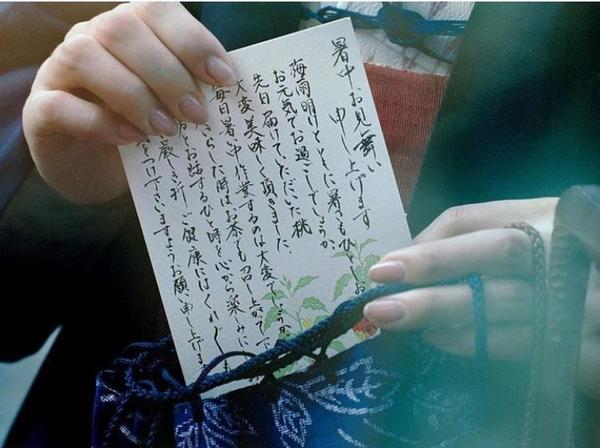 暑中お見舞い
申し上げます
梅雨明けとともに暑さもひとしお
お元気でお過ごしでしょうか
先日届けていただいた桃
大変美味しく頂きました
毎日暑い中作業するのは大変でしょうが
らした時はお茶でも召し上がって下
とお話するひと時を心から楽しみに
厳しき折ご健康にはくれぐれ
をつけ下さいますようお願い申し上げま